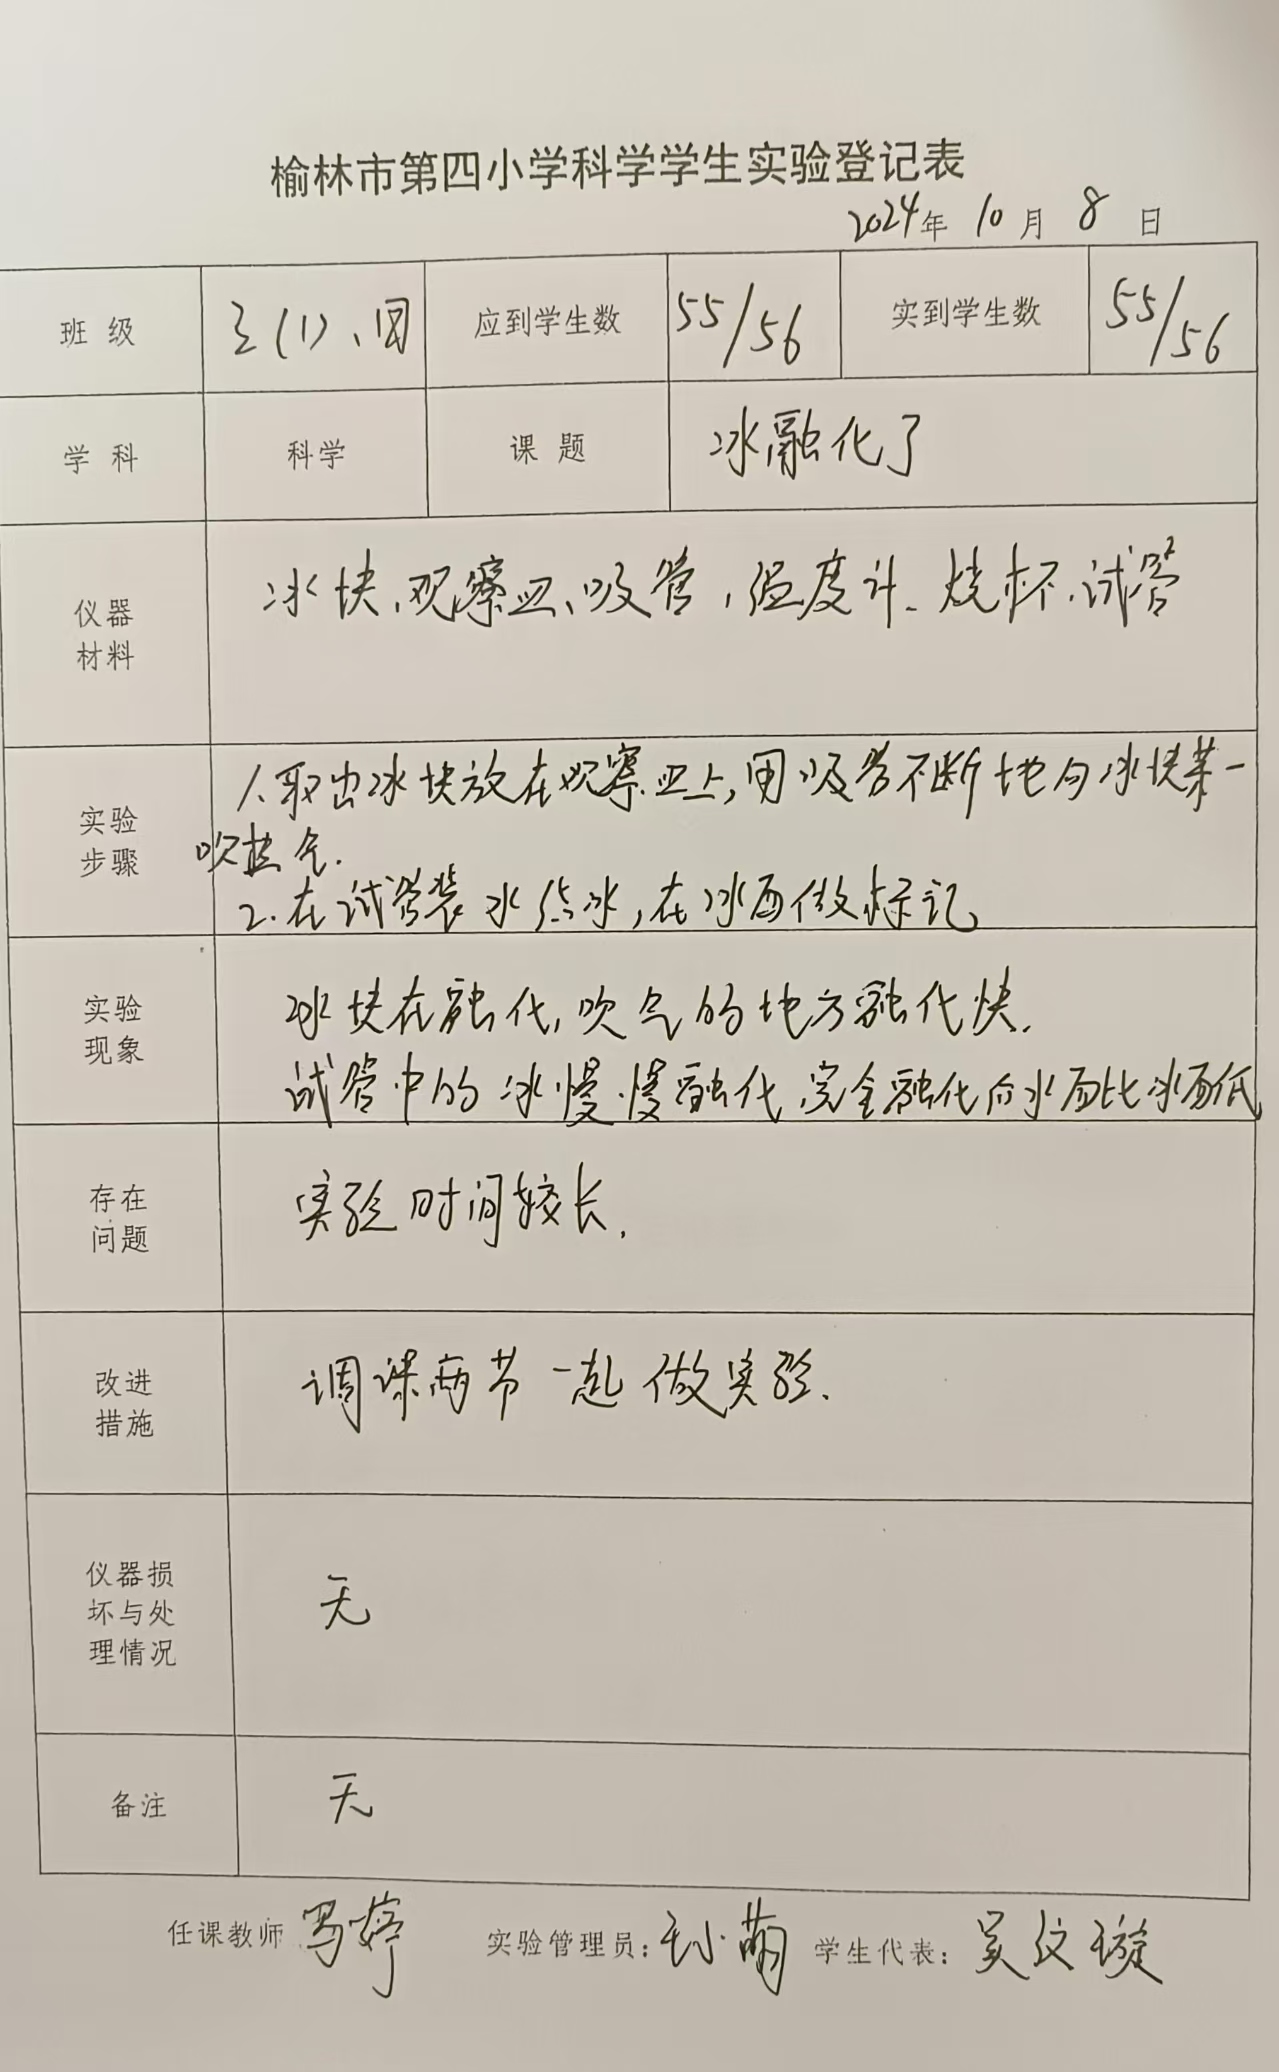 榆林市第四小学科学学生实验登记表
2024年 10月 8日
班级 三(1)、四 应到学生数 55/56 实到学生数 55/56
学科 科学 课题 冰融化了
仪器
材料
冰块、观察皿、吸管,温度计、烧杯、试管
实验
步骤
1.取出冰块放在观察皿上,用吸管不断地向冰块某一
吹热气.
2.在试管装水结冰,在冰面做标记
实验
现象
冰块在融化,吹气的地方融化快.
试管中的冰慢慢融化,完全融化后水面比冰面低
存在
问题
实验时间较长.
改进
措施
调课两节一起做实验.
仪器损
坏与处
理情况
无
备注 无
任课教师 冯婷 实验管理员: 孙萌 学生代表: 吴纹璇